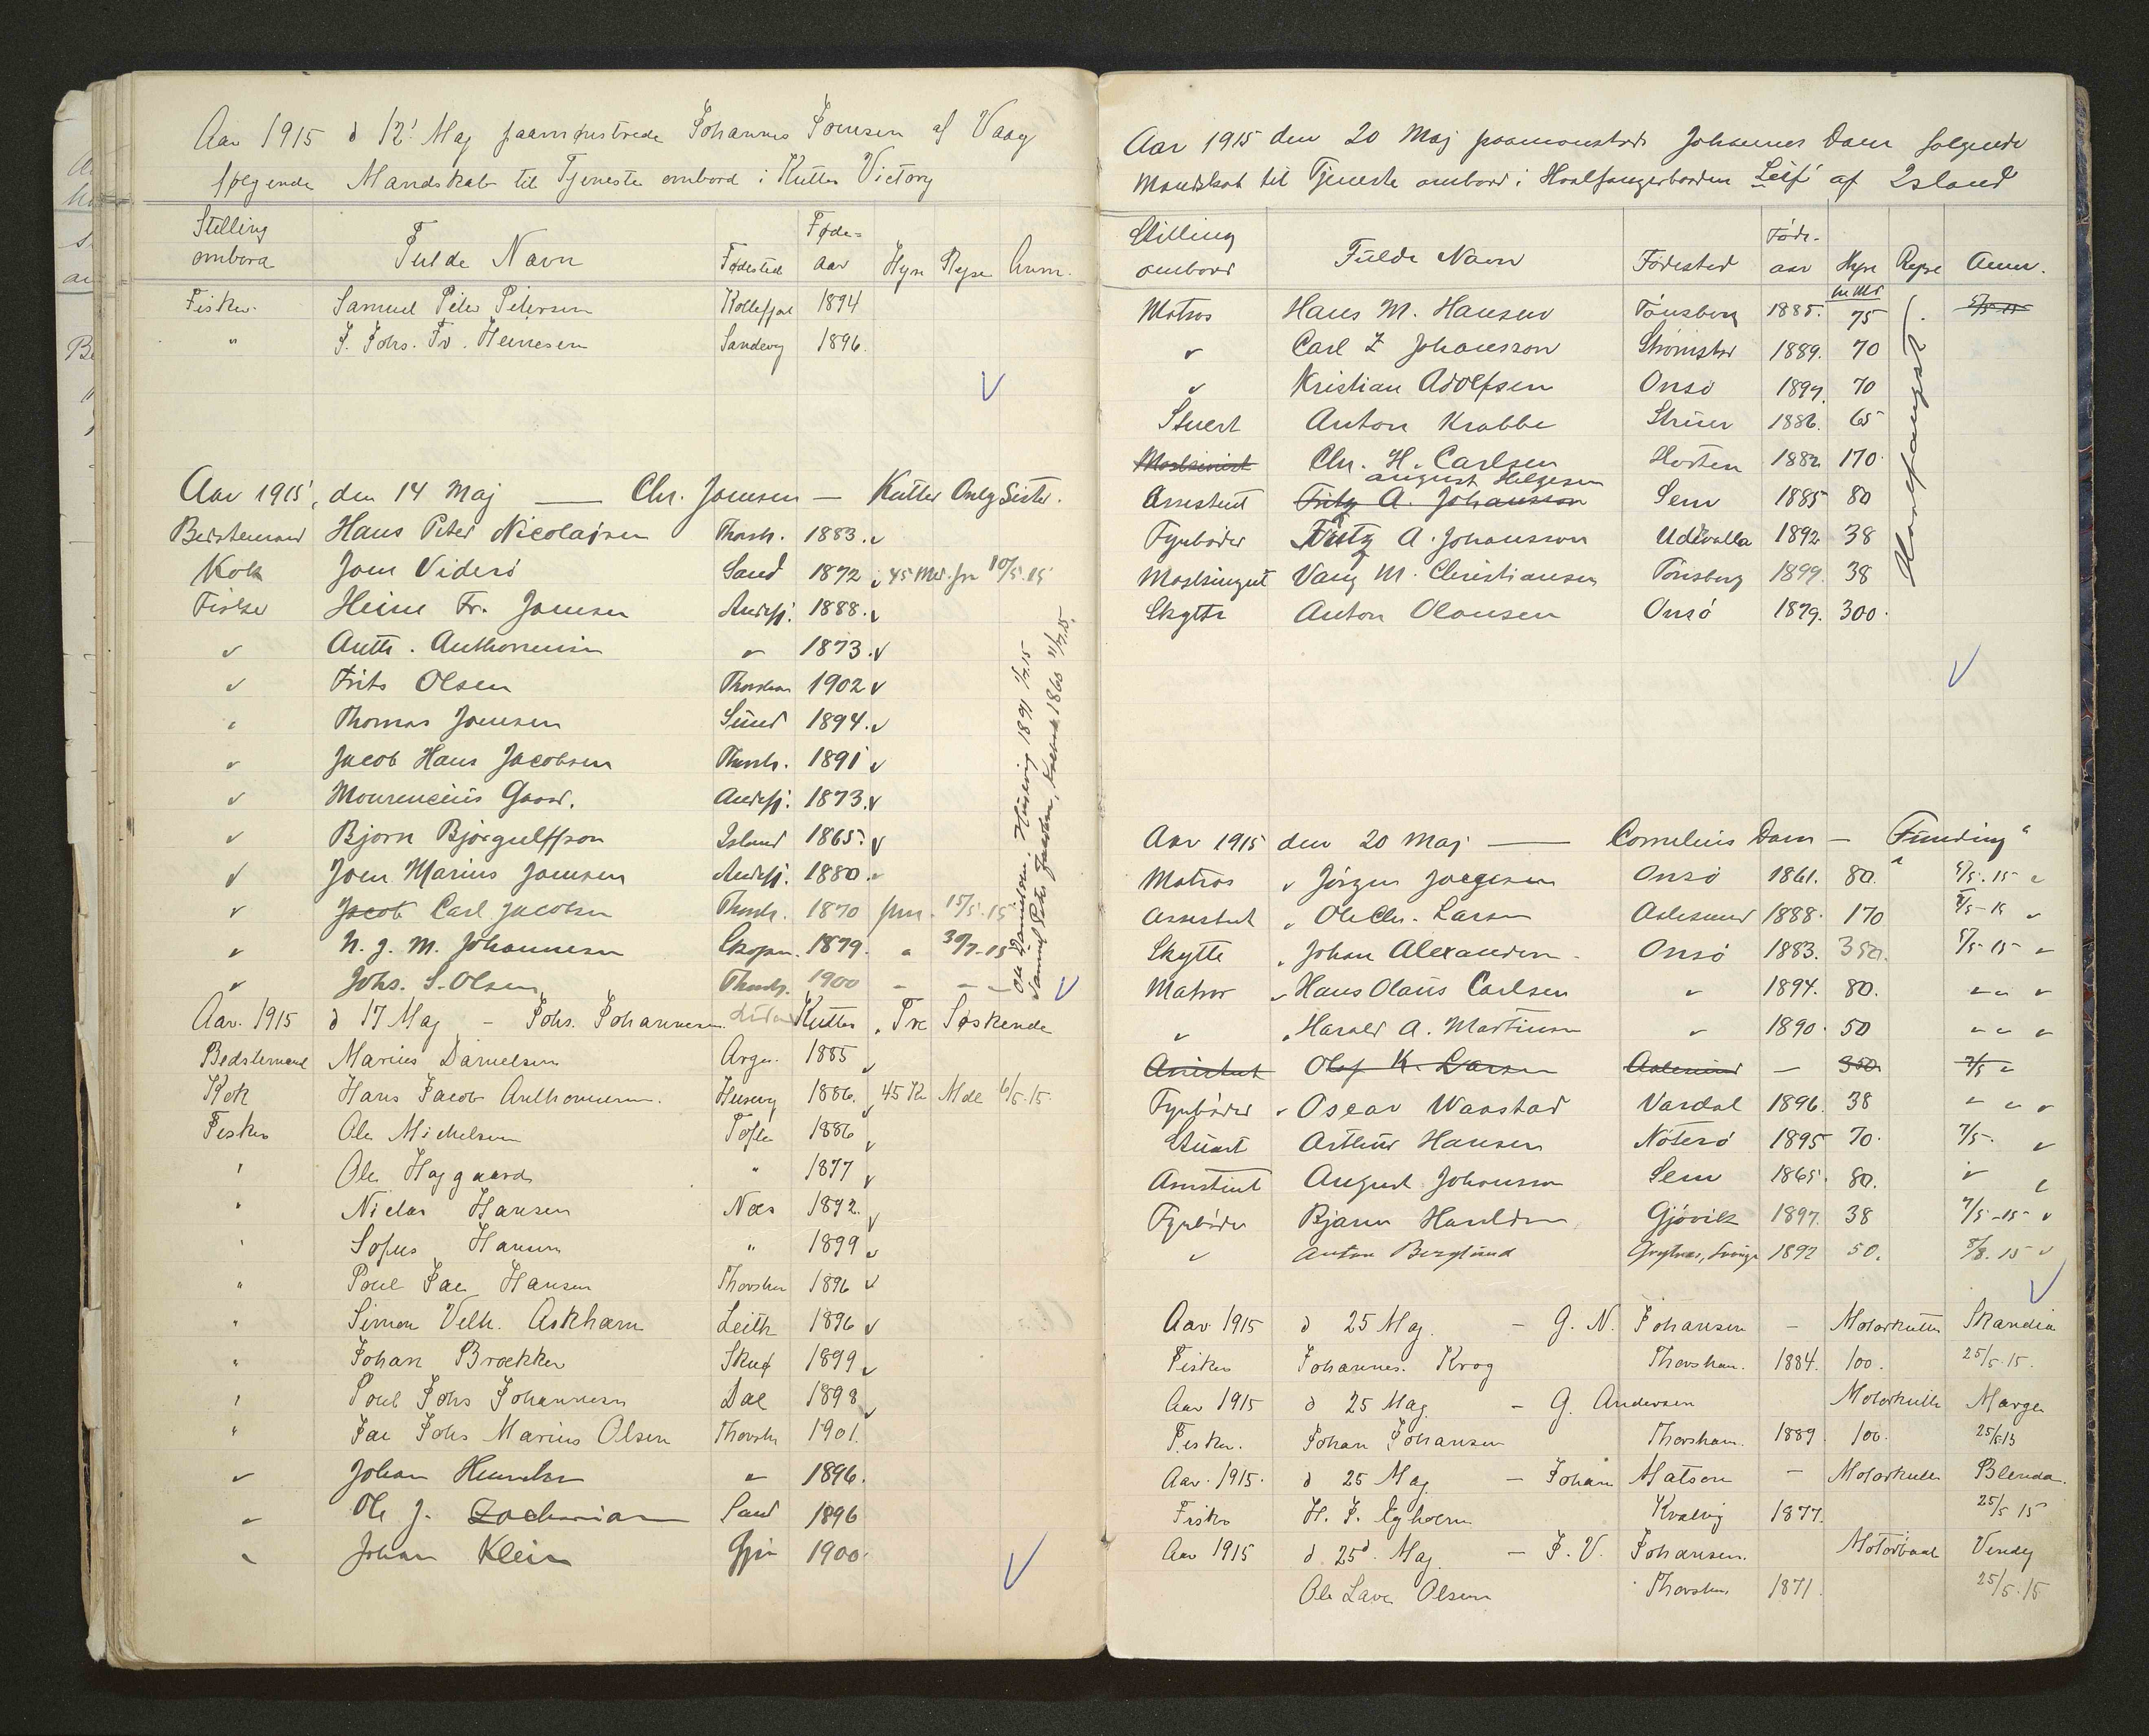 Aar 1915 d 12' Maj paamønstrede Johannes Joensen af Vaag
følgende Mandskab til Tjeneste ombord i Kutter Victory
Stilling ombord Fulde Navn Fødested Føde-aar Hyre Rejse Anm.
Fisker Samuel Peter Petersen Kollefjord 1894
" J. Johs. Fr. Heinesen Sandevg 1896.
Aar 1915, den 14 Maj — Chr. Joensen — Kutter Only Sister.
Bedstemand Hans Peter Nicolajsen Thorsh. 1883.
Kok Joen Viderö Sand 1872 45 Md. fra 10/5.15
Fisker Heine Fr. Joensen Andefj. 1888.
" Anth. Anthoniussen " 1873.
" Frits Olsen Thorshavn 1902
" Thomas Joensen Sund 1894.
" Jacob Hans Jacobsen Thorsh. 1891
" Mourencius Gaard. Andefj. 1873.
" Bjørn Bjørgulffson Island 1865.
" Joen Marius Joensen Andefj. 1880.
" Jacob Carl Jacobsen Thorsh. 1870 fra 15/5.15
" N. J. M. Johannesen Skopen. 1879. " 30/7-15
" Johs. S. Olsen Thorsh. 1900 - - -
Ole Danielsen, Húsevig 1891 1/7.15
Samuel Peter Jacobsen, 1868 21/7.15.
Aar. 1915 d 17 Maj - Johs. Johannesen Kutter „Tre Søskende
Bedstemand Marius Danielsen Argir. 1885
Kok Hans Jacob Anthoniussen. Husevg 1886. 45 Kr Mdl 6/5.15.
Fisker Ole Michelsen Tofte 1886
" Ole Højgaard " 1877
" Niclas Hansen Næs 1892.
" Sofus Hansen " 1899
" Poul Jac Hansen Thorshvn 1896
" Simon Velh. Askham Leith 1896
" Johan Brækker Skuø 1899
" Poul Johs Johannesen Dal 1898
" Jac Johs Marius Olsen Thorshv 1901.
" Johan " 1896.
" Ole J. Zachariasen Sand 1896
" Johan Klein Gjov 1900.
Aar 1915 den 20 Maj paamönstrede Johannes Dam følgende
Mandskab til Tjeneste ombord i Hvalfangerbaaden Leif af Island
Stilling ombord Fulde Navn Fødested Føde-aar Hyre Rejse Anm.
Matros Hans M. Hansen Tönsberg 1885. 75
" Carl Z Johansson Strömstad 1889. 70
" Kristian Adolfsen Onsö 1897. 70
Stuert Anton Krabbe Struer 1886. 65
Maskinist Chr. H. Carlsen Horten 1882 170.
August Helgesen
Assistent Fritz A. Johansson Sem 1885 80
Fyrböder Fritz A. Johansson Uddevalla 1892 38
Maskingut Vang M. Christiansen Tönsberg 1899. 38
Skytte Anton Olausen Onsö 1879. 300.
Hvalfangst
Aar 1915 den 20 Maj — Cornelius Dam — „Funding"
Matros Jörgen Jörgesen Onsö 1861. 80.
Assistent Ole Chr. Larsen Aalesund 1888. 170
Skytte Johan Alexandersen Onsö 1883. 350.
Matros Hans Olaus Carlsen " 1894. 80.
" Harald A. Martinsen " 1890. 50
Assistent Olaf K. Larsen Aalesund — 350.
Fyrböder Oscar Waastad Vardal 1896. 38
Stuart Arthur Hansen Nöterö 1895 70. 7/5.
Assistent August Johansson Sem 1865. 80.
Fyrböder Bjarne Haraldsen Gjövik 1897. 38 7/5-15
" Anton Berglund Sverige 1892 50. 8/8. 15
Aar 1915 d 25 Maj. - G. N. Johansen - Motorkutter Skandia
Fisker Johannes. Krog Thorshavn. 1884. 100. 25/5.15.
Aar 1915 d 25 Maj - G. Andersen Motorkutter Marge
Fisker. Johan Johansen Thorshavn. 1889 100. 25/5.15
Aar. 1915. d 25 Maj - Johan Matson - Motorkutter Blenda.
Fisker H. J. Egholm Kvalvig 1877. 25/5 15
Aar 1915 d 25d. Maj. - J. V. Johansen. Motorbaad Vendy
Ole Lave Olsen Thorshvn 1871. 25/5.15